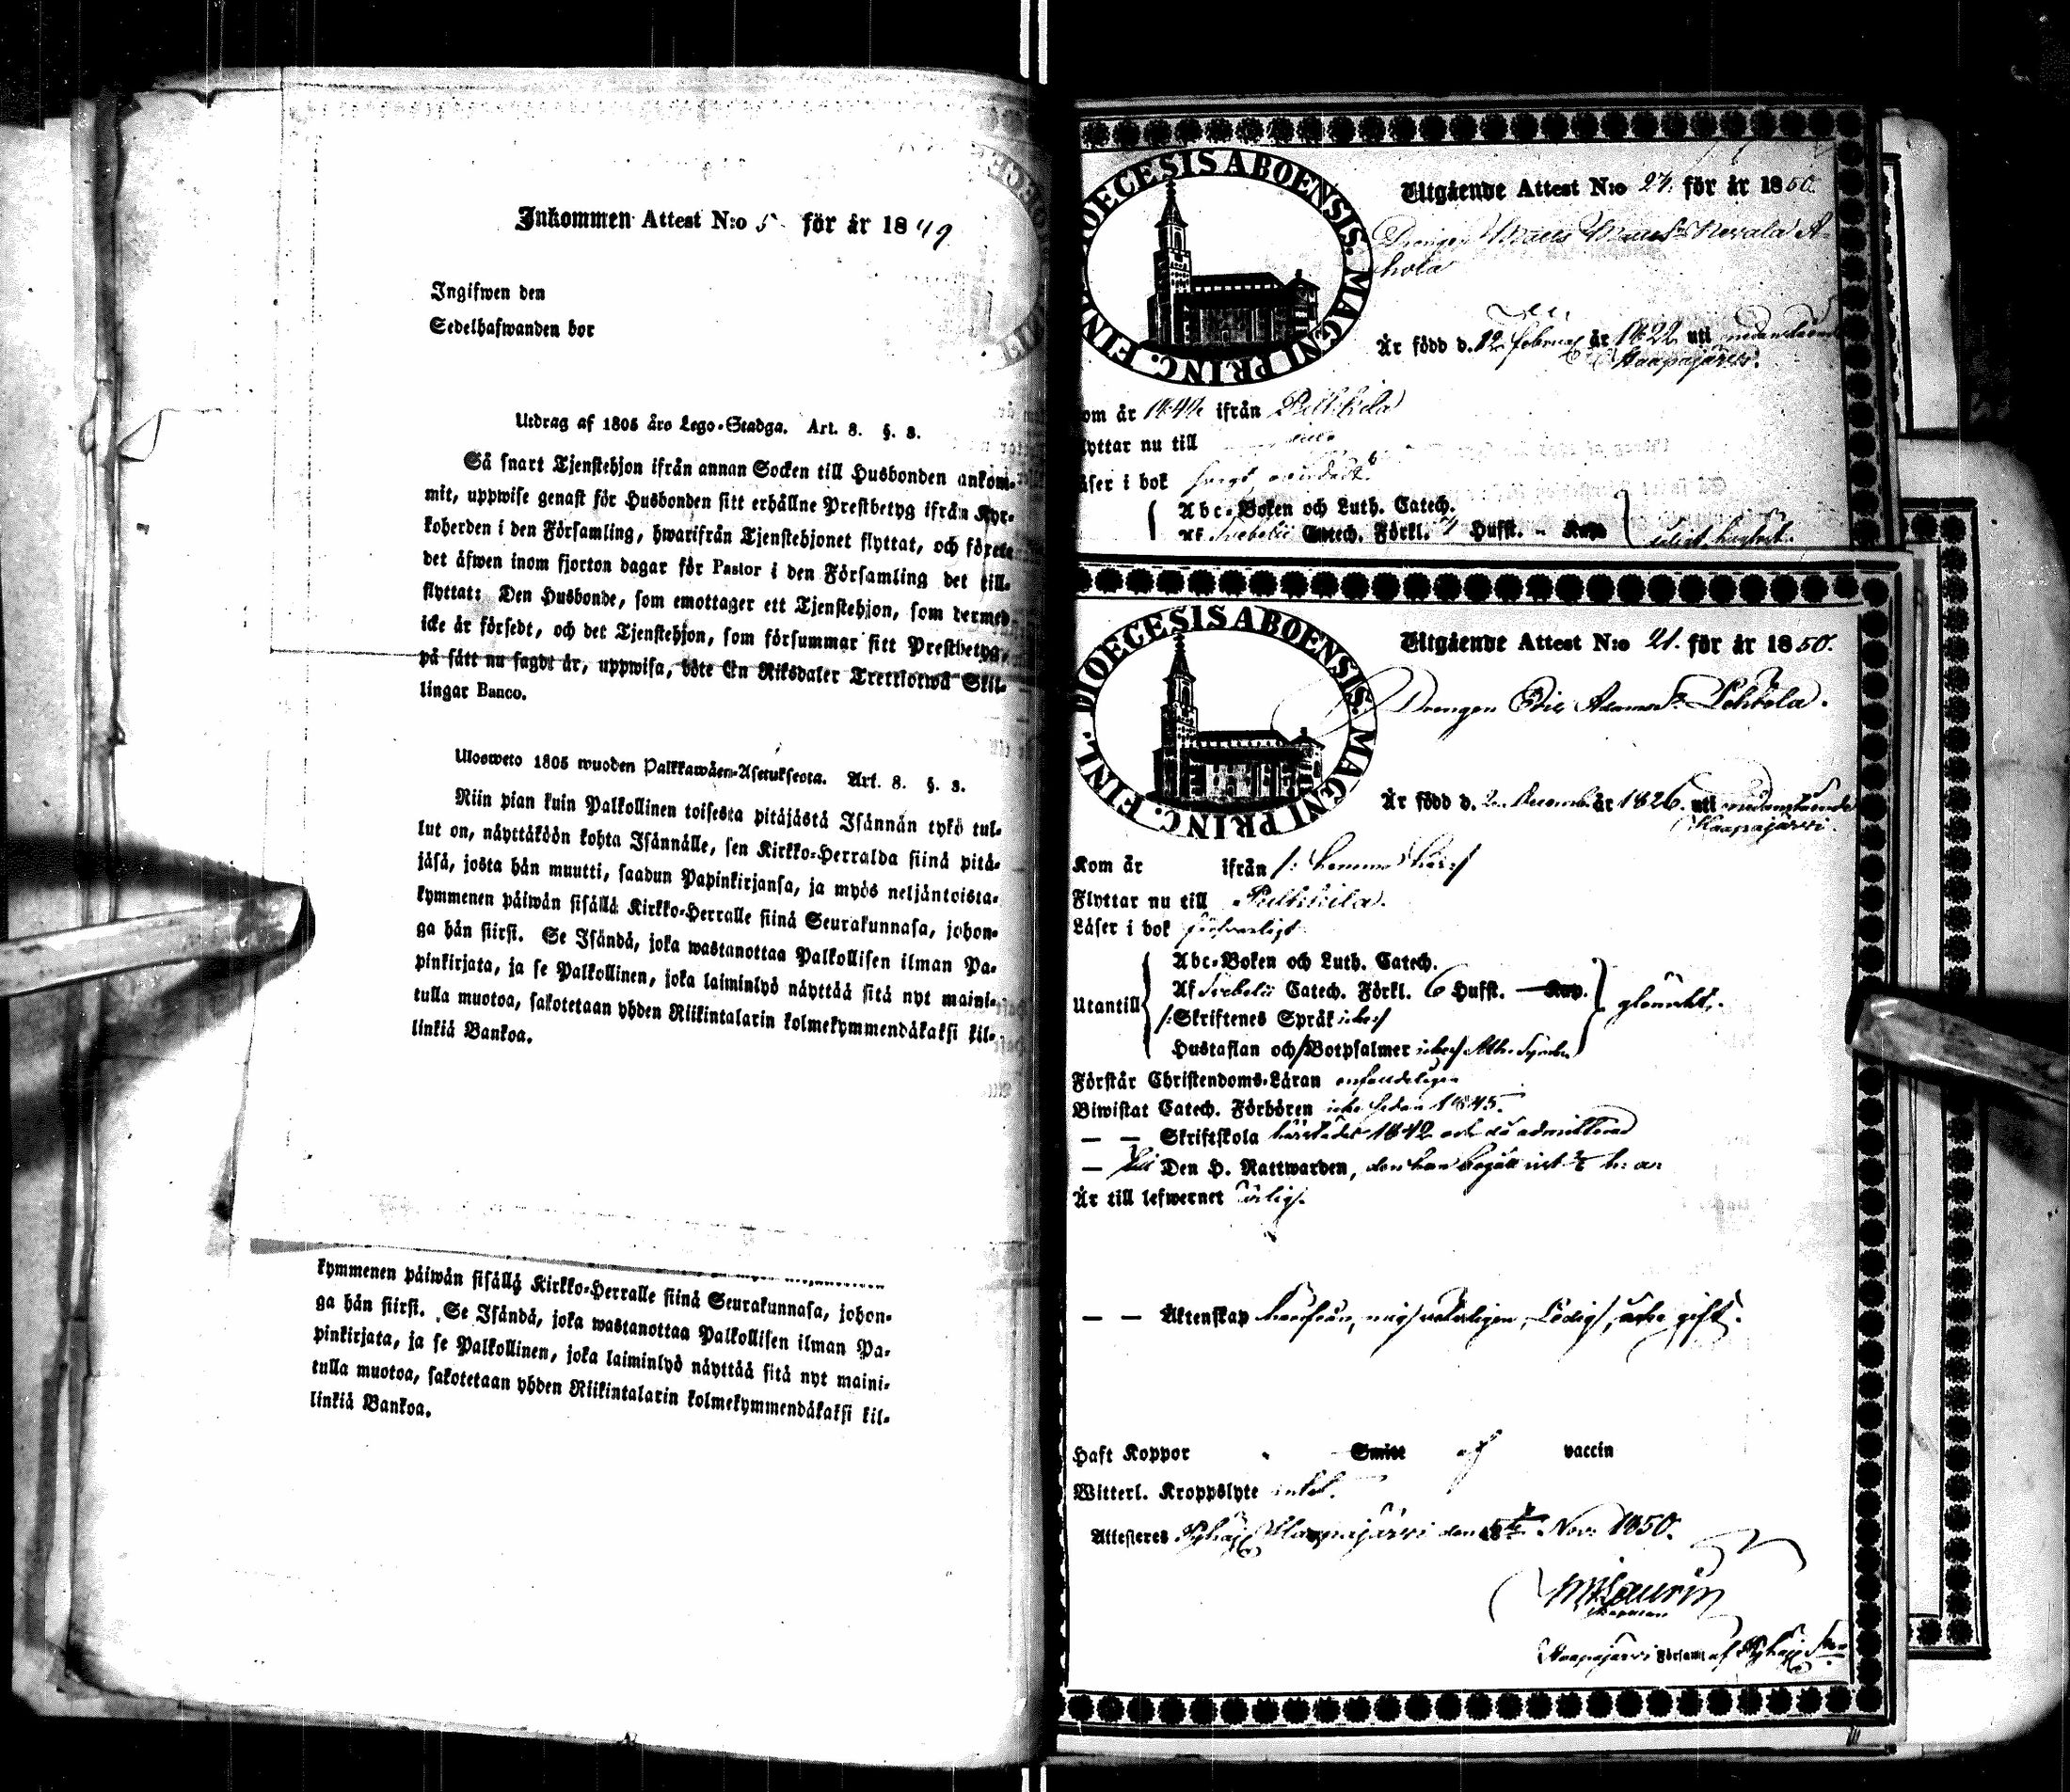 Inkommen Attest N:o 5 för år 1849
Ingifwen den
Sedelhafwanden bor
Utdrag af 1805 års Lego-Stadga. Art. 8. §. 3.
Så snart Tjenstehjon ifrån annan Socken till Husbonden ankom-
mit, uppwise genast för Husbonden sitt erhållne Prestbetyg ifrån Kyr-
koherden i den Församling, hwarifrån Tjenstehjonet flyttat, och förete
det äfwen inom fjorton dagar för Pastor i den Församling det till-
flyttat: Den Husbonde, som emottager ett Tjenstehjon, som dermed
icke är försedt, och det Tjenstehjon, som försummar sitt Prestbetyg,
på sätt nu sagdt är, uppwisa, böte En Riksdaler Trettiotwå Skil-
lingar Banco.
Ulosweto 1805 wuoden Palkkawäen-Asetuksesta. Art. 8. §. 3.
Niin pian kuin Palkollinen toisesta pitäjästä Isännän tykö tul-
lut on, näyttäköön kohta Isännälle, sen Kirkko-Herralda siinä pitä-
jäsä, josta hän muutti, saadun Papinkirjansa, ja myös neljäntoista-
kymmenen päiwän sisällä Kirkko-Herralle siinä Seurakunnasa, johon-
ga hän siirsi. Se Isändä, joka wastanottaa Palkollisen ilman Pa-
pinkirjata, ja se Palkollinen, joka laiminlyö näyttää sitä nyt maini-
tulla muotoa, sakotetaan yhden Riikintalarin kolmekymmendäkaksi kil-
linkiä Bankoa.
kymmenen päiwän sisällä Kirkko-Herralle siinä Seurakunnasa, johon-
ga hän siirsi. Se Isändä, joka wastanottaa Palkollisen ilman Pa-
pinkirjata, ja se Palkollinen, joka laiminlyö näyttää sitä nyt maini-
tulla muotoa, sakotetaan yhden Riikintalarin kolmekymmendäkaksi kil-
linkiä Bankoa.
DIOECESIS ABOENSIS. MAGNI PRINC. FINL.
Utgående Attest N:o 27. för år 1850.
Drengen Matts Matts
Är född d. 12 Februar år 1822 uti nedanstående
Haapajärvi.
om år ifrån Pulkkila
lyttar nu till
äser i bok
Abc-Boken och Luth. Catech.
Af Svebelii Catech. Förkl. Hufst. - Kap
DIOECESIS ABOENSIS. MAGNI PRINC. FINL.
Utgående Attest N:o 21. för år 1850.
Drengen Eric Adams
Är född d. 2 Decemb. år 1826. uti nedanstående
Haapajärvi.
Kom år ifrån
Flyttar nu till Pulkkila.
Läser i bok försvarligt
Utantill
Abc-Boken och Luth. Catech.
Af Svebelii Catech. Förkl. 6 Hufst. — Kap.
Skriftenes Språk icke
Hustaflan och Botpsalmer icke
Förstår Christendoms-Läran
Biwistat Catech. Förhören icke sedan 1845.
— — Skriftskola härstädes 1842 och då admitterad
— Den H. Nattwarden, den han begått
Är till lefwernet ärlig.
— — Äktenskap härifrån, mig veterligen, ledig, icke gift.
Haft Koppor Smitt af vaccin
Witterl. Kroppslyte intet.
Attesteras Pyhäj. Haapajärvi den Nov. 1850.
Haapajärvi Församl. af Pyhäj.